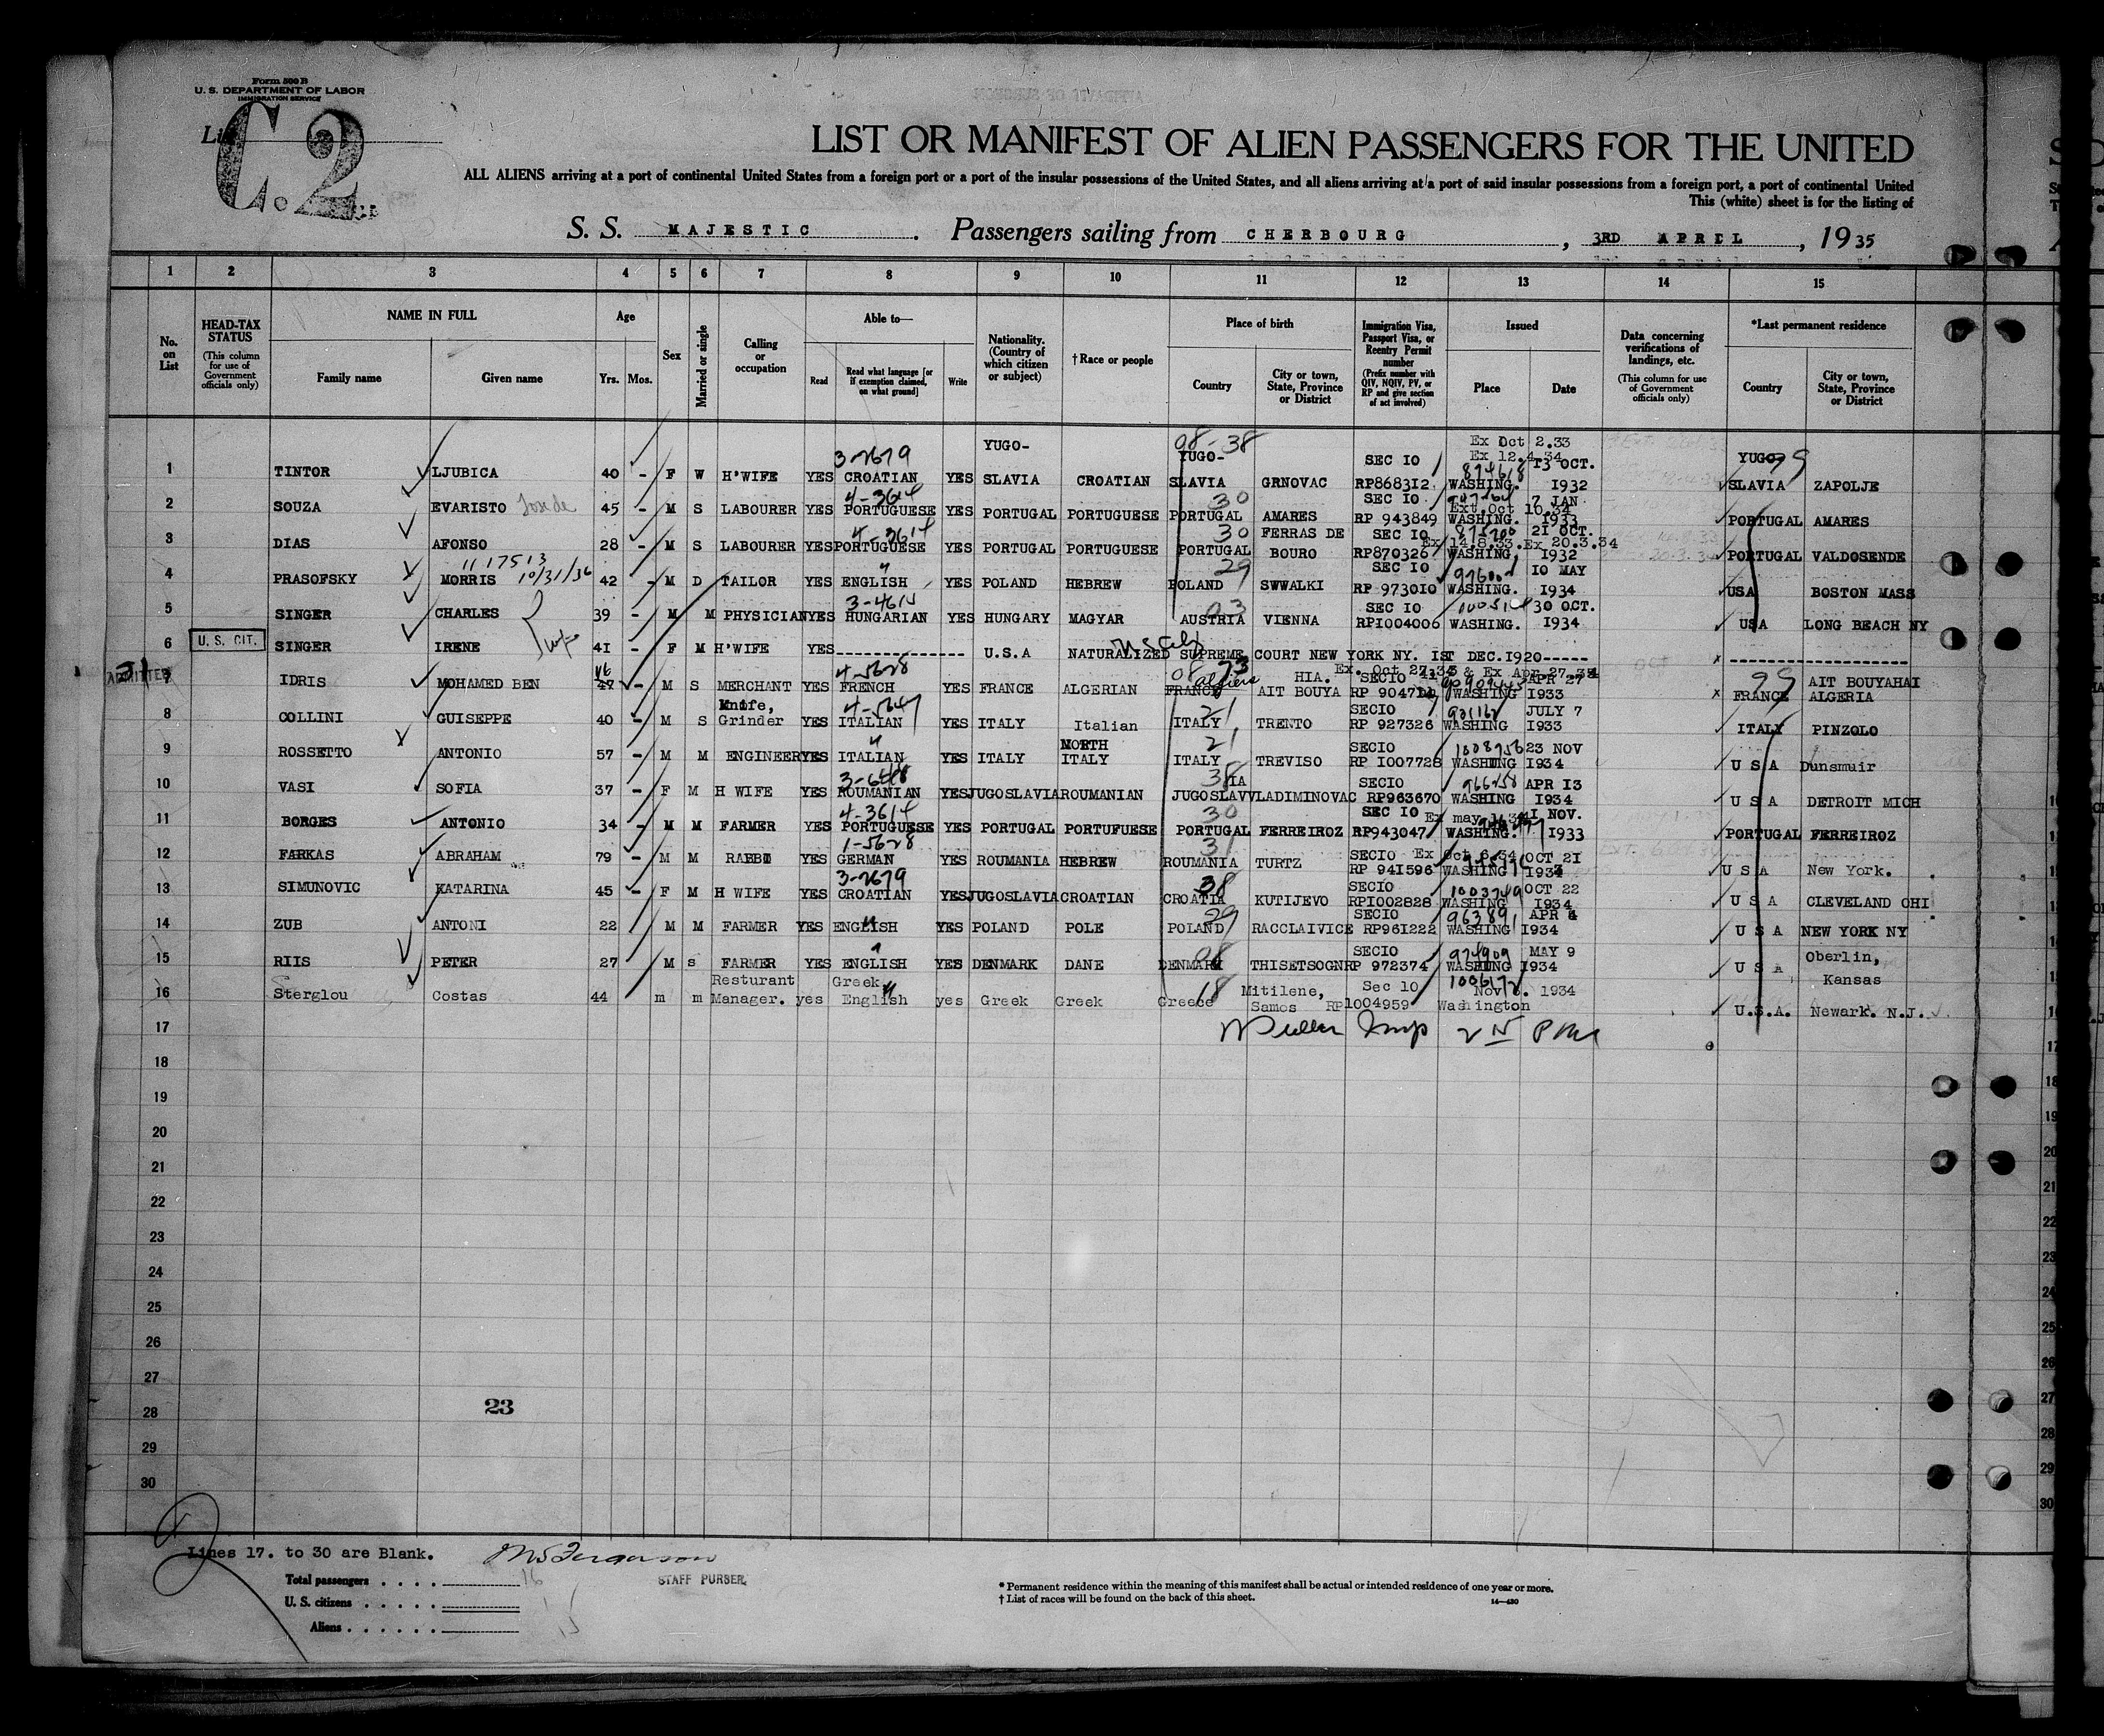 Form 500 B
U. S. DEPARTMENT OF LABOR
IMMIGRATION SERVICE
List
C. 2
LIST OR MANIFEST OF ALIEN PASSENGERS FOR THE UNITED
ALL ALIENS arriving at a port of continental United States from a foreign port or a port of the insular possessions of the United States, and all aliens arriving at a port of said insular possessions from a foreign port, a port of continental United
This (white) sheet is for the listing of
S. S. MAJESTIC. Passengers sailing from CHERBOURG, 3RD APRIL, 1935
1 2 3 4 5 6 7 8 9 10 11 12 13 14 15
No. on List
HEAD-TAX STATUS (This column for use of Government officials only)
NAME IN FULL
Family name Given name
Age
Yrs. Mos.
Sex
Married or single
Calling or occupation
Able to—
Read Read what language [or if exemption claimed, on what ground] Write
Nationality. (Country of which citizen or subject)
† Race or people
Place of birth
Country City or town, State, Province or District
Immigration Visa, Passport Visa, or Reentry Permit number (Prefix number with QIV, NQIV, PV, or RP and give section of act involved)
Issued
Place Date
Data concerning verifications of landings, etc. (This column for use of Government officials only)
*Last permanent residence
Country City or town, State, Province or District
1 TINTOR LJUBICA 40 - F W H'WIFE YES 3-2679 CROATIAN YES YUGO-SLAVIA CROATIAN 98-38 YUGO-SLAVIA GRNOVAC SEC IO RP868312 Ex Oct 2.33 Ex 12.4.34 874618 WASHING. 13 OCT. I932 YUGO-SLAVIA 99 ZAPOLJE
2 SOUZA EVARISTO 45 - M S LABOURER YES 4-3614 PORTUGUESE YES PORTUGAL PORTUGUESE 30 PORTUGAL AMARES SEC IO RP 943849 Ext.Oct 10.34 WASHING. 7 JAN I933 PORTUGAL AMARES
3 DIAS AFONSO 28 - M S LABOURER YES 4-3614 PORTUGUESE YES PORTUGAL PORTUGUESE 30 PORTUGAL FERRAS DE BOURO SEC IO RP870326 Ex 14.8.33. Ex 20.3.34 WASHING. 21 OCT. I932 PORTUGAL VALDOSENDE
4 PRASOFSKY 11 17513 MORRIS 10/31/36 42 - M D TAILOR YES ENGLISH YES POLAND HEBREW 29 POLAND SWWALKI SEC IO RP 973010 WASHING. IO MAY I934 USA BOSTON MASS
5 SINGER CHARLES 39 - M M PHYSICIAN YES HUNGARIAN YES HUNGARY MAGYAR 03 AUSTRIA VIENNA SEC IO RPI004006 WASHING. 30 OCT. I934 USA LONG BEACH NY
6 U. S. CIT. SINGER IRENE wife 4I - F M H'WIFE YES--------------- U.S.A NATURALIZED SUPREME COURT NEW YORK NY. IST DEC.I920----- -----------------
ADMITTED
7 IDRIS MOHAMED BEN 47 - M S MERCHANT YES 4-5628 FRENCH YES FRANCE ALGERIAN FRANCE Algiers AIT BOUYA HIA. SECIO WASHING APR 27 I933 99 FRANCE AIT BOUYAHAI ALGERIA
8 COLLINI GUISEPPE 40 - M S Knife, Grinder YES ITALIAN YES ITALY Italian 21 ITALY TRENTO SECIO RP 927326 WASHING JULY 7 I933 ITALY PINZOLO
9 ROSSETTO ANTONIO 57 - M M ENGINEER YES ITALIAN YES ITALY NORTH ITALY 21 ITALY TREVISO SECIO RP I007728 1008956 WASHING 23 NOV I934 U S A Dunsmuir
10 VASI SOFIA 37 - F M H WIFE YES ROUMANIAN YES JUGOSLAVIA ROUMANIAN 38 JUGOSLAVIA VLADIMINOVAC SECIO RP963670 WASHING APR I3 I934 U S A DETROIT MICH
11 BORGES ANTONIO 34 - M M FARMER YES 4-3614 PORTUGUESE YES PORTUGAL PORTUFUESE 30 PORTUGAL FERREIROZ SEC IO RP943047 WASHING. I NOV. I933 PORTUGAL FERREIROZ
12 FARKAS ABRAHAM 79 - M M RABBI YES 1-5628 GERMAN YES ROUMANIA HEBREW 31 ROUMANIA TURTZ SECIO RP 94I596 Ex Oct 6.34 WASHING OCT 2I U S A New York.
13 SIMUNOVIC KATARINA 45 - F M H WIFE YES 3-2679 CROATIAN YES JUGOSLAVIA CROATIAN 38 CROATIA KUTIJEVO SECIO RPI002828 1003749 WASHING OCT 22 I934 U S A CLEVELAND OHI
14 ZUB ANTONI 22 M M FARMER YES ENGLISH YES POLAND POLE 29 POLAND RACCLAIVICE SECIO RP96I222 963891 WASHING APR 4 I934 U S A NEW YORK NY
15 RIIS PETER 27 M S FARMER YES ENGLISH YES DENMARK DANE 08 DENMARK THISETSOGN SECIO RP 972374 974909 WASHING MAY 9 I934 U S A Oberlin, Kansas
16 Sterglou Costas 44 m m Resturant Manager. yes Greek English yes Greek Greek 18 Greece Mitilene, Samos Sec 10 RP1004959 Washington Nov 1934 U.S.A. Newark. N.J.
17
18
19
20
21
22
23
24
25
26
27
28
29
30
23
Lines 17. to 30 are Blank.
STAFF PURSER.
Total passengers . . . . 16
U. S. citizens . . . . . 1
Aliens . . . . . . 15
* Permanent residence within the meaning of this manifest shall be actual or intended residence of one year or more.
† List of races will be found on the back of this sheet.
14—430